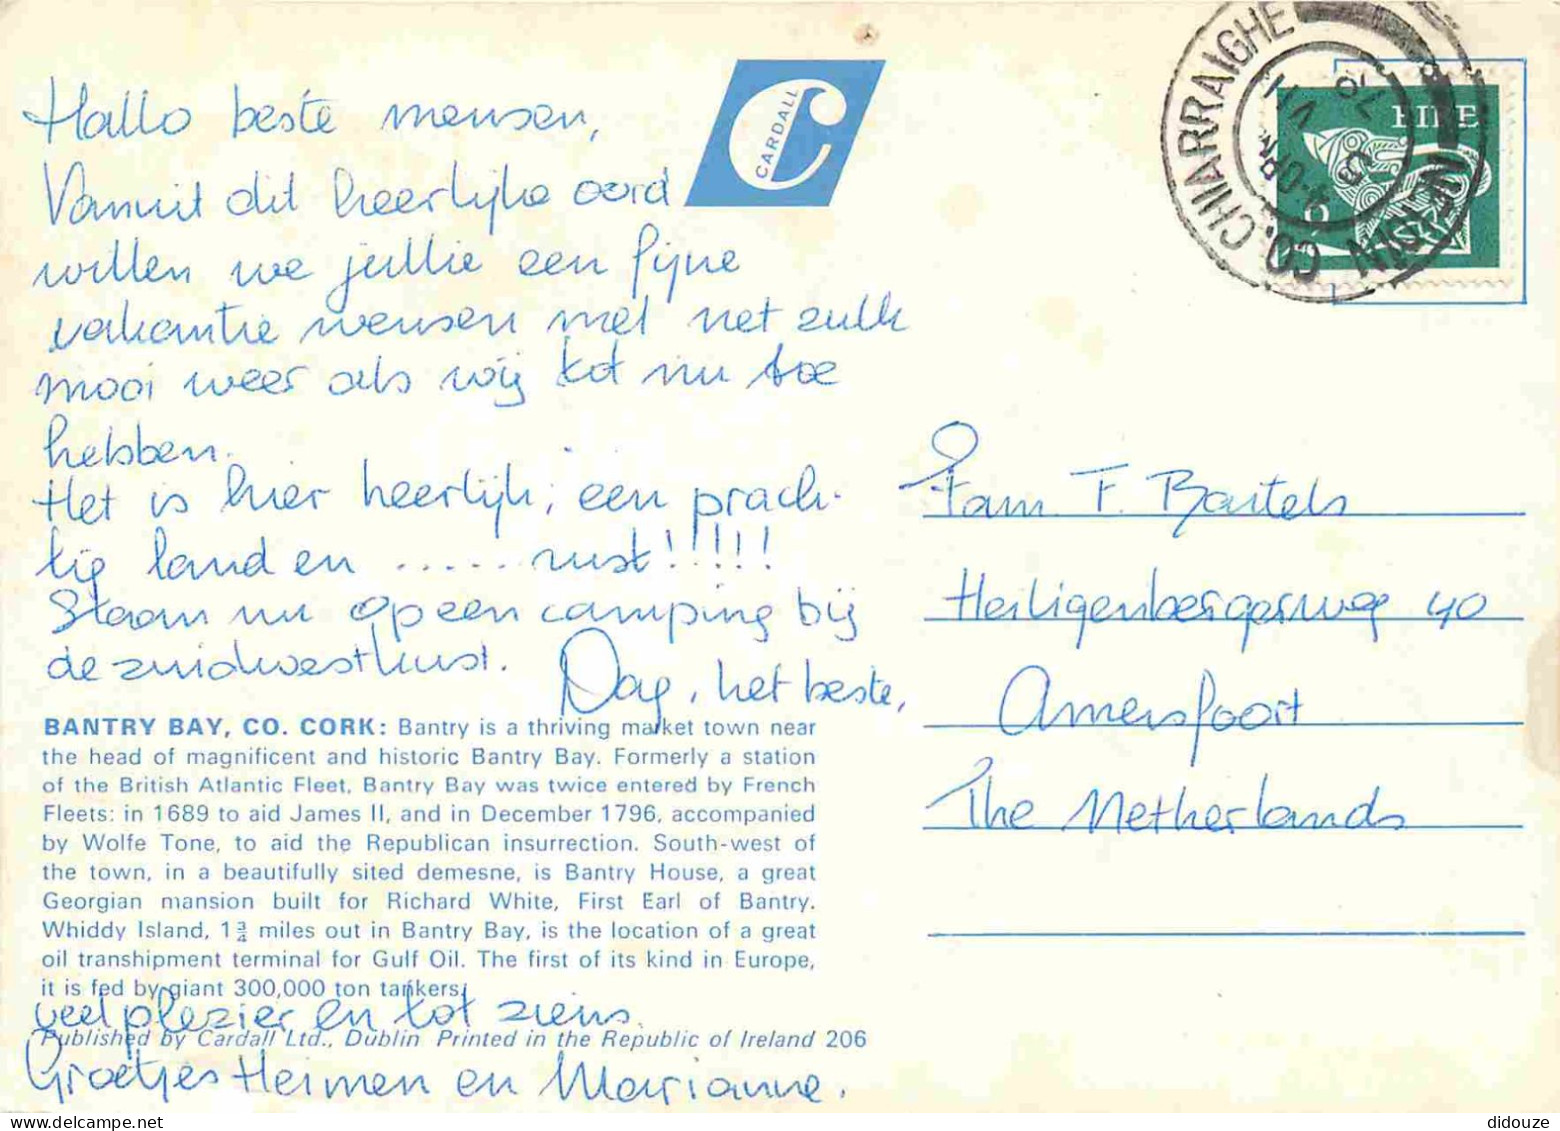 Hallo beste mensen,
Vanuit dit heerlijke oord
willen we jullie een fijne
vakantie wensen met net zulk
mooi weer als wij tot nu toe
hebben.
Het is hier heerlijk; een prach-
tig land en ...... rust!!!!!
Staan nu op een camping bij
de zuidwestkust. Dag, het beste,
BANTRY BAY, CO. CORK: Bantry is a thriving market town near
the head of magnificent and historic Bantry Bay. Formerly a station
of the British Atlantic Fleet, Bantry Bay was twice entered by French
Fleets: in 1689 to aid James II, and in December 1796, accompanied
by Wolfe Tone, to aid the Republican insurrection. South-west of
the town, in a beautifully sited demesne, is Bantry House, a great
Georgian mansion built for Richard White, First Earl of Bantry.
Whiddy Island, 1¾ miles out in Bantry Bay, is the location of a great
oil transhipment terminal for Gulf Oil. The first of its kind in Europe,
it is fed by giant 300,000 ton tankers.
veel plezier en tot ziens.
Published by Cardall Ltd., Dublin Printed in the Republic of Ireland 206
Groetjes Heimen en Marianne.
CARDALL
CO. CHIARRAIGHE
EIRE
6
Fam. F. Bartels
Heiligenbergerweg 40
Amersfoort
The Netherlands
didouze